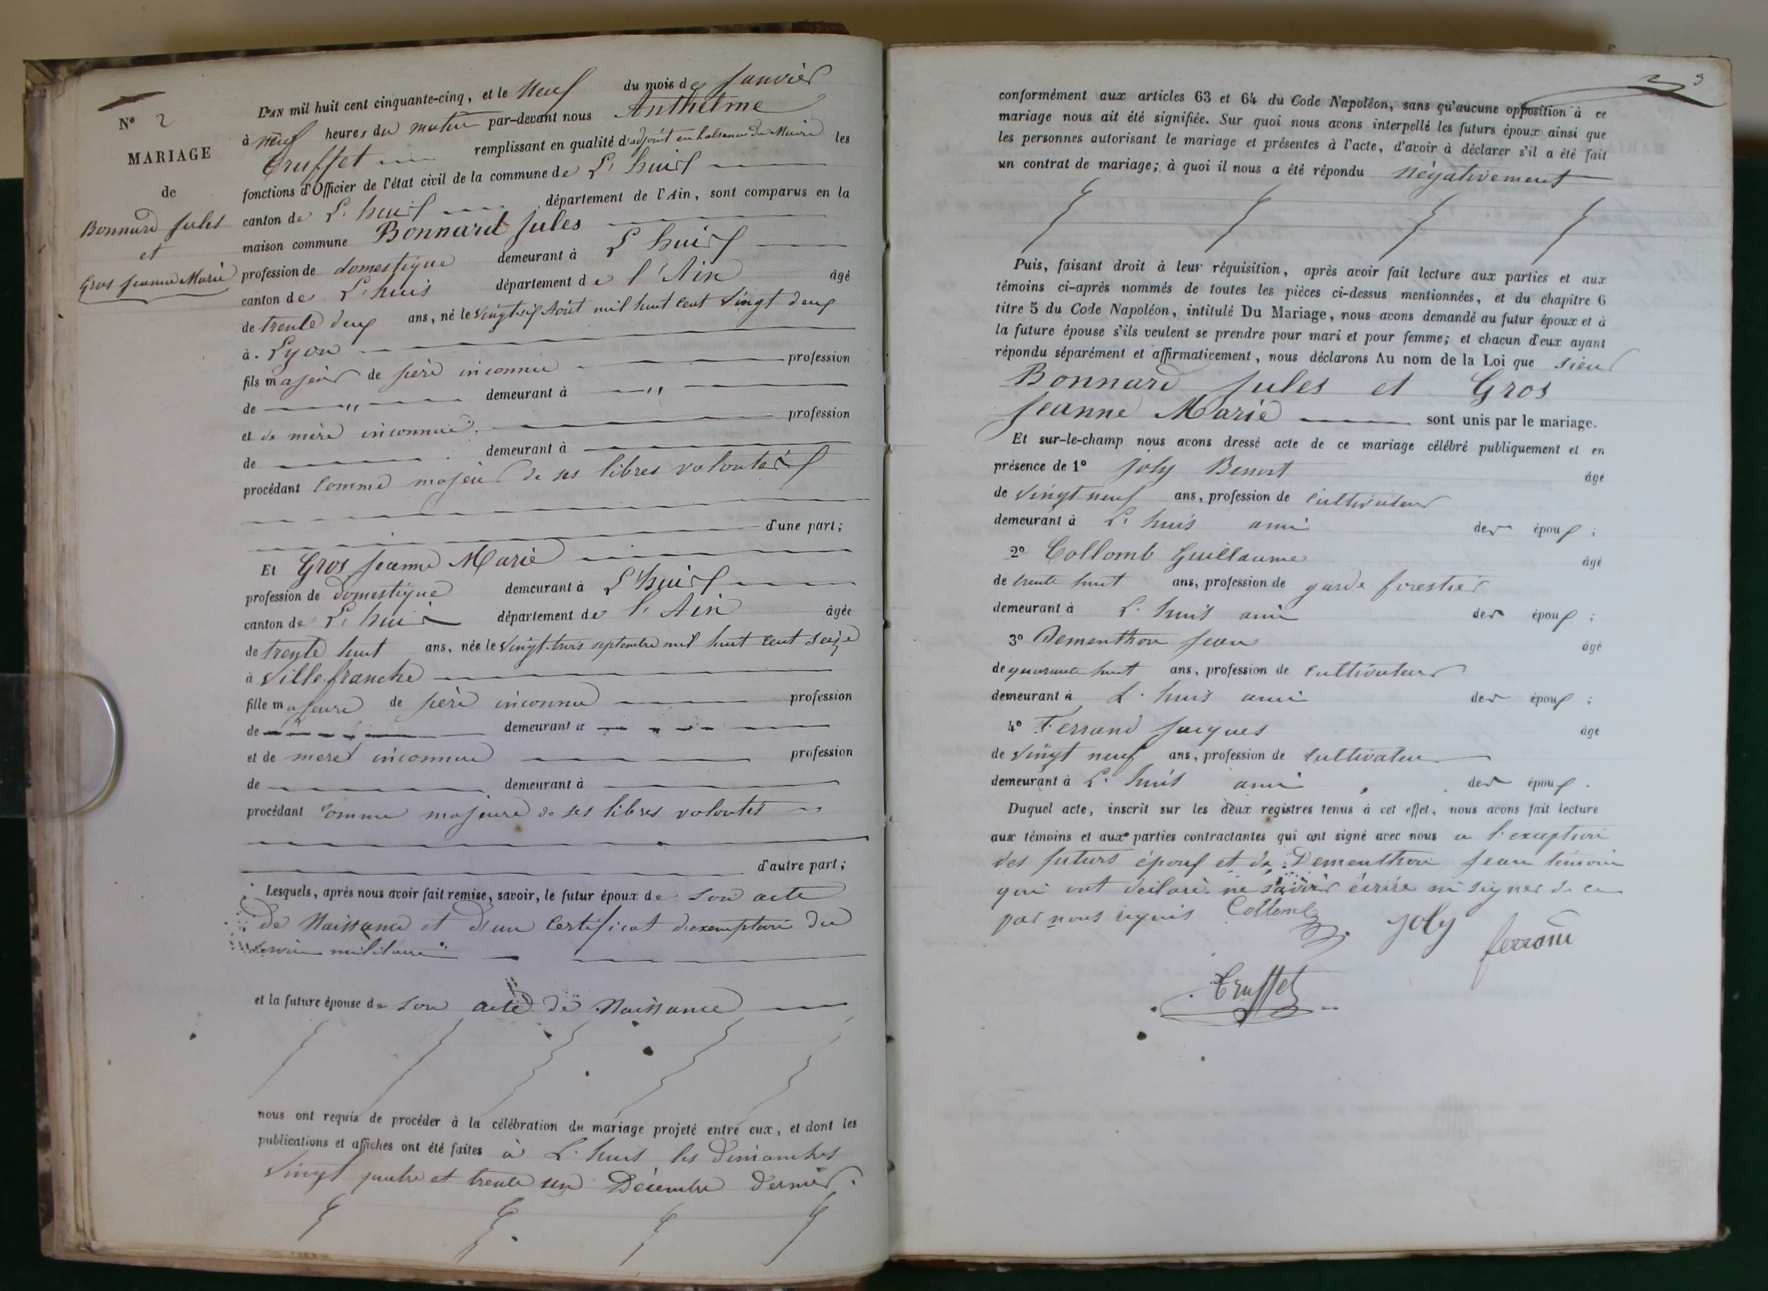 N° 2
MARIAGE
de
Bonnard Jules
et
Gros Jeanne Marie
L'an mil huit cent cinquante-cinq, et le Neuf du mois de Janvier
à neuf heures du matin par-devant nous Anthelme
Truffet remplissant en qualité d'adjoint en l'absence du Maire les
fonctions d'Officier de l'état civil de la commune de L'huis
canton de L'huis département de l'Ain, sont comparus en la
maison commune Bonnard Jules
profession de domestique demeurant à L'huis
canton de L'huis département de l'Ain âgé
de trente deux ans, né le vingt six Août mil huit cent vingt deux
à Lyon
fils majeur de père inconnu profession
de " demeurant à "
et de mère inconnue profession
de demeurant à
procédant comme majeur de ses libres volontés
d'une part;
Et Gros Jeanne Marie
profession de domestique demeurant à L'huis
canton de L'huis département de l'Ain âgée
de trente huit ans, née le vingt-trois septembre mil huit cent seize
à Villefranche
fille majeure de père inconnu profession
de demeurant à
et de mère inconnue profession
de demeurant à
procédant comme majeure de ses libres volontés
d'autre part;
Lesquels, après nous avoir fait remise, savoir, le futur époux de son acte
de Naissance et d'un certificat d'exemption du
service militaire
et la future épouse de son acte de Naissance
nous ont requis de procéder à la célébration du mariage projeté entre eux, et dont les
publications et affiches ont été faites à L'huis les dimanches
vingt quatre et trente un Décembre dernier.
3
conformément aux articles 63 et 64 du Code Napoléon, sans qu'aucune opposition à ce
mariage nous ait été signifiée. Sur quoi nous avons interpellé les futurs époux ainsi que
les personnes autorisant le mariage et présentes à l'acte, d'avoir à déclarer s'il a été fait
un contrat de mariage; à quoi il nous a été répondu négativement
Puis, faisant droit à leur réquisition, après avoir fait lecture aux parties et aux
témoins ci-après nommés de toutes les pièces ci-dessus mentionnées, et du chapitre 6
titre 5 du Code Napoléon, intitulé Du Mariage, nous avons demandé au futur époux et à
la future épouse s'ils veulent se prendre pour mari et pour femme; et chacun d'eux ayant
répondu séparément et affirmativement, nous déclarons Au nom de la Loi que sieur
Bonnard Jules et Gros
Jeanne Marie sont unis par le mariage.
Et sur-le-champ nous avons dressé acte de ce mariage célébré publiquement et en
présence de 1° Joly Benoit âgé
de vingt neuf ans, profession de cultivateur
demeurant à L'huis ami des époux;
2° Collomb Guillaume âgé
de trente huit ans, profession de garde forestier
demeurant à L'huis ami des époux;
3° Dementhon Jean âgé
de quarante huit ans, profession de cultivateur
demeurant à L'huis ami des époux;
4° Ferrand Jacques âgé
de vingt neuf ans, profession de cultivateur
demeurant à L'huis ami des époux.
Duquel acte, inscrit sur les deux registres tenus à cet effet, nous avons fait lecture
aux témoins et aux parties contractantes qui ont signé avec nous à l'exception
des futurs époux et du Dementhon Jean témoin
qui ont déclaré ne savoir écrire ni signer de ce
par nous requis Collomb Joly
Truffet